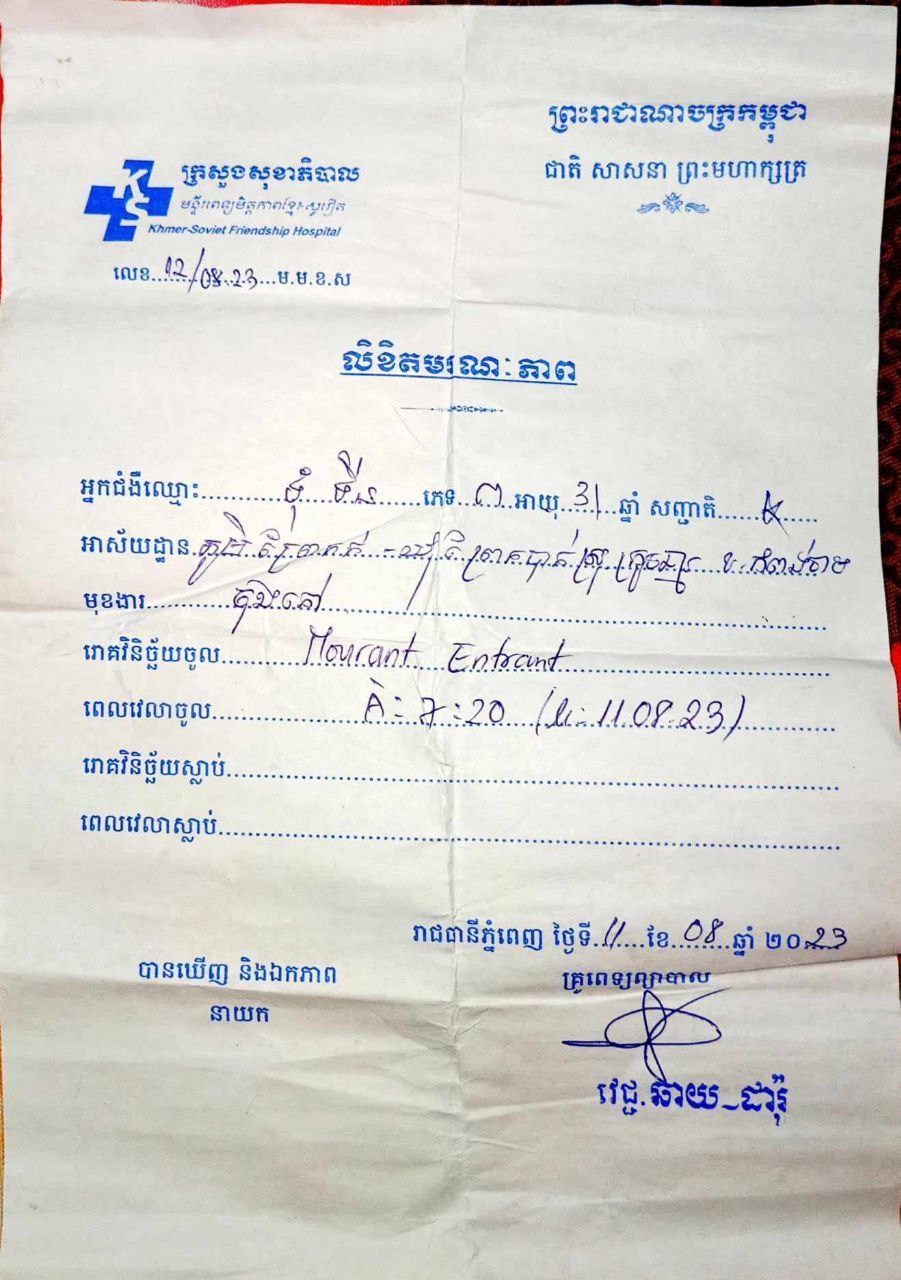 ព្រះរាជាណាចក្រកម្ពុជា
ជាតិ សាសនា ព្រះមហាក្សត្រ
KS
ក្រសួងសុខាភិបាល
មន្ទីរពេទ្យមិត្តភាពខ្មែរ-សូវៀត
Khmer-Soviet Friendship Hospital
លេខ...12/08.23...ម.ម.ខ.ស
លិខិតមរណៈភាព
អ្នកជំងឺឈ្មោះ..........ភេទ...អាយុ 31 ឆ្នាំ សញ្ជាតិ.....
អាស័យដ្ឋាន
មុខងារ..........
រោគវិនិច្ឆ័យចូល..........Mourant Entrant
ពេលវេលាចូល..........7:20 (11.08.23)
រោគវិនិច្ឆ័យស្លាប់..........
ពេលវេលាស្លាប់..........
រាជធានីភ្នំពេញ ថ្ងៃទី 11 ខែ 08 ឆ្នាំ ២០23
បានឃើញ និងឯកភាព
នាយក
គ្រូពេទ្យព្យាបាល
វេជ្ជ.ឆាយ_ដារ៉ុ